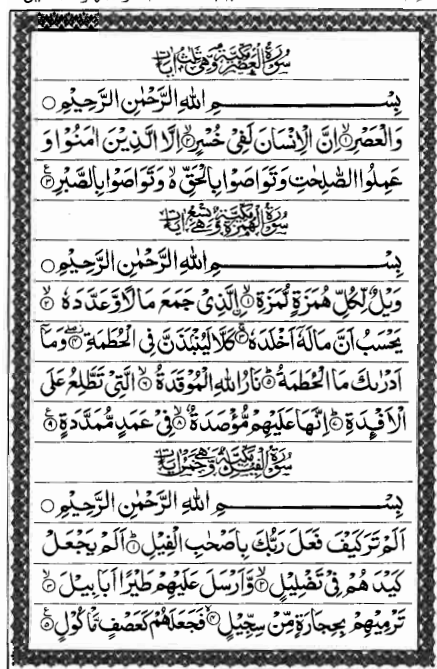 سُوْرَةُ الْعَصْرِ مَكِّيَّةٌ وَّهِيَ ثَلٰثُ اٰيَاتٍ
بِسْمِ اللهِ الرَّحْمٰنِ الرَّحِيْمِ ○
وَالْعَصْرِ ۙ﴿۱﴾ اِنَّ الْاِنْسَانَ لَفِيْ خُسْرٍ ۙ﴿۲﴾ اِلَّا الَّذِيْنَ اٰمَنُوْا وَ
عَمِلُوا الصّٰلِحٰتِ وَتَوَاصَوْا بِالْحَقِّ ۙ۬ وَتَوَاصَوْا بِالصَّبْرِ ﴿۳﴾ ع
سُوْرَةُ الْهُمَزَةِ مَكِّيَّةٌ وَّهِيَ تِسْعُ اٰيَاتٍ
بِسْمِ اللهِ الرَّحْمٰنِ الرَّحِيْمِ ○
وَيْلٌ لِّكُلِّ هُمَزَةٍ لُّمَزَةِ ۙ﴿۱﴾ اِلَّذِيْ جَمَعَ مَالًا وَّعَدَّدَهٗ ۙ﴿۲﴾
يَحْسَبُ اَنَّ مَالَهٗٓ اَخْلَدَهٗ ۚ﴿۳﴾ كَلَّا لَيُنْۢبَذَنَّ فِي الْحُطَمَةِ ۖ﴿۴﴾ وَمَآ
اَدْرٰىكَ مَا الْحُطَمَةُ ؕ﴿۵﴾ نَارُ اللهِ الْمُوْقَدَةُ ۙ﴿۶﴾ الَّتِيْ تَطَّلِعُ عَلَى
الْاَفْـِٕدَةِ ؕ﴿۷﴾ اِنَّهَا عَلَيْهِمْ مُّؤْصَدَةٌ ۙ﴿۸﴾ فِيْ عَمَدٍ مُّمَدَّدَةٍ ﴿۹﴾ ع
سُوْرَةُ الْفِيْلِ مَكِّيَّةٌ وَّهِيَ خَمْسُ اٰيَاتٍ
بِسْمِ اللهِ الرَّحْمٰنِ الرَّحِيْمِ ○
اَلَمْ تَرَ كَيْفَ فَعَلَ رَبُّكَ بِاَصْحٰبِ الْفِيْلِ ؕ﴿۱﴾ اَلَمْ يَجْعَلْ
كَيْدَهُمْ فِيْ تَضْلِيْلٍ ۙ﴿۲﴾ وَّاَرْسَلَ عَلَيْهِمْ طَيْرًا اَبَابِيْلَ ۙ﴿۳﴾
تَرْمِيْهِمْ بِحِجَارَةٍ مِّنْ سِجِّيْلٍ ۙ﴿۴﴾ فَجَعَلَهُمْ كَعَصْفٍ مَّاْكُوْلٍ ﴿۵﴾ ع